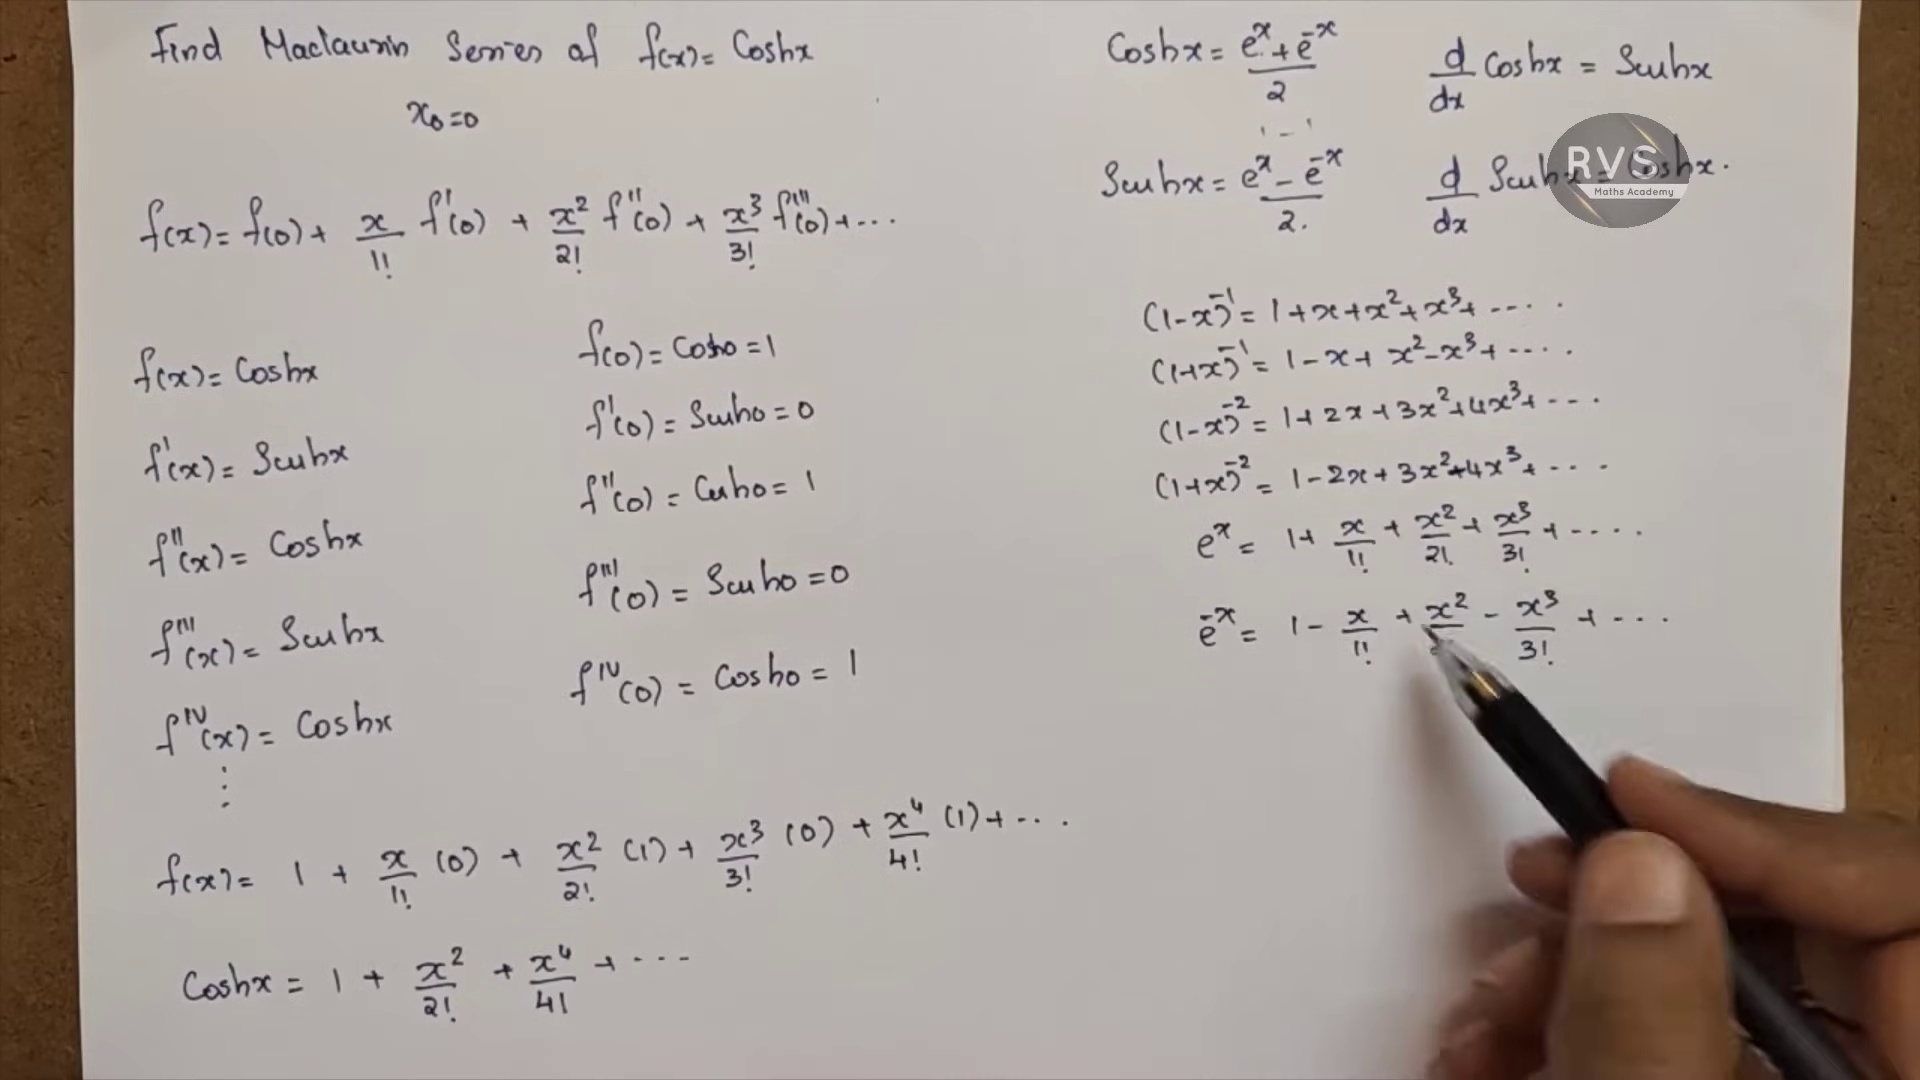 Find Maclaurin Series of f(x) = Coshx
x₀=0
f(x) = f(0) + x/1! f'(0) + x²/2! f''(0) + x³/3! f'''(0) + ...
f(x) = Coshx
f(0) = Cosh0 = 1
f'(x) = Sinhx
f'(0) = Sinh0 = 0
f''(x) = Coshx
f''(0) = Cosh0 = 1
f'''(x) = Sinhx
f'''(0) = Sinh0 = 0
f^IV(x) = Coshx
f^IV(0) = Cosh0 = 1
⋮
f(x) = 1 + x/1! (0) + x²/2! (1) + x³/3! (0) + x⁴/4! (1) + ...
Coshx = 1 + x²/2! + x⁴/4! + ...
Coshx = (e^x + e^-x)/2
d/dx Coshx = Sinhx
Sinhx = (e^x - e^-x)/2.
d/dx Sinhx = Coshx.
RVS
Maths Academy
(1-x)^-1 = 1+x+x²+x³+ ....
(1+x)^-1 = 1-x+x²-x³+ ....
(1-x)^-2 = 1+2x+3x²+4x³+ ...
(1+x)^-2 = 1-2x+3x²-4x³+ ....
e^x = 1+ x/1! + x²/2! + x³/3! + ....
e^-x = 1 - x/1! + x² - x³/3! + ...